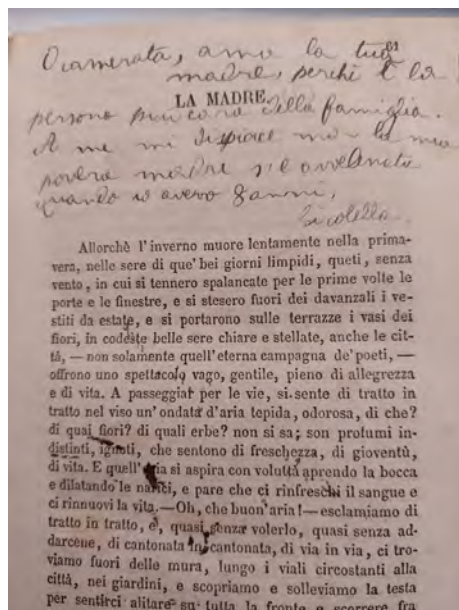 Camerata, ama la tua
madre, perchè è la
LA MADRE.
persona più cara della famiglia.
A me mi dispiace ma la mia
povera madre s'è avvelenata
quando io avevo 8 anni,
Allorchè l'inverno muore lentamente nella prima-
vera, nelle sere di que' bei giorni limpidi, queti, senza
vento, in cui si tennero spalancate per le prime volte le
porte e le finestre, e si stesero fuori dei davanzali i ve-
stiti da estate, e si portarono sulle terrazze i vasi dei
fiori, in codeste belle sere chiare e stellate, anche le cit-
tà, — non solamente quell'eterna campagna de' poeti, —
offrono uno spettacolo vago, gentile, pieno di allegrezza
e di vita. A passeggiar per le vie, si sente di tratto in
tratto nel viso un' ondata d'aria tepida, odorosa, di che?
di quai fiori? di quali erbe? non si sa; son profumi in-
distinti, ignoti, che sentono di freschezza, di gioventù,
di vita. E quell'aria si aspira con voluttà aprendo la bocca
e dilatando le narici, e pare che ci rinfreschi il sangue e
ci rinnuovi la vita. — Oh, che buon'aria! — esclamiamo di
tratto in tratto, e, quasi senza volerlo, quasi senza ad-
darcene, di cantonata in cantonata, di via in via, ci tro-
viamo fuori delle mura, lungo i viali circostanti alla
città, nei giardini, e scopriamo e solleviamo la testa
per sentirci alitare su tutta la fronte e scorrere fra